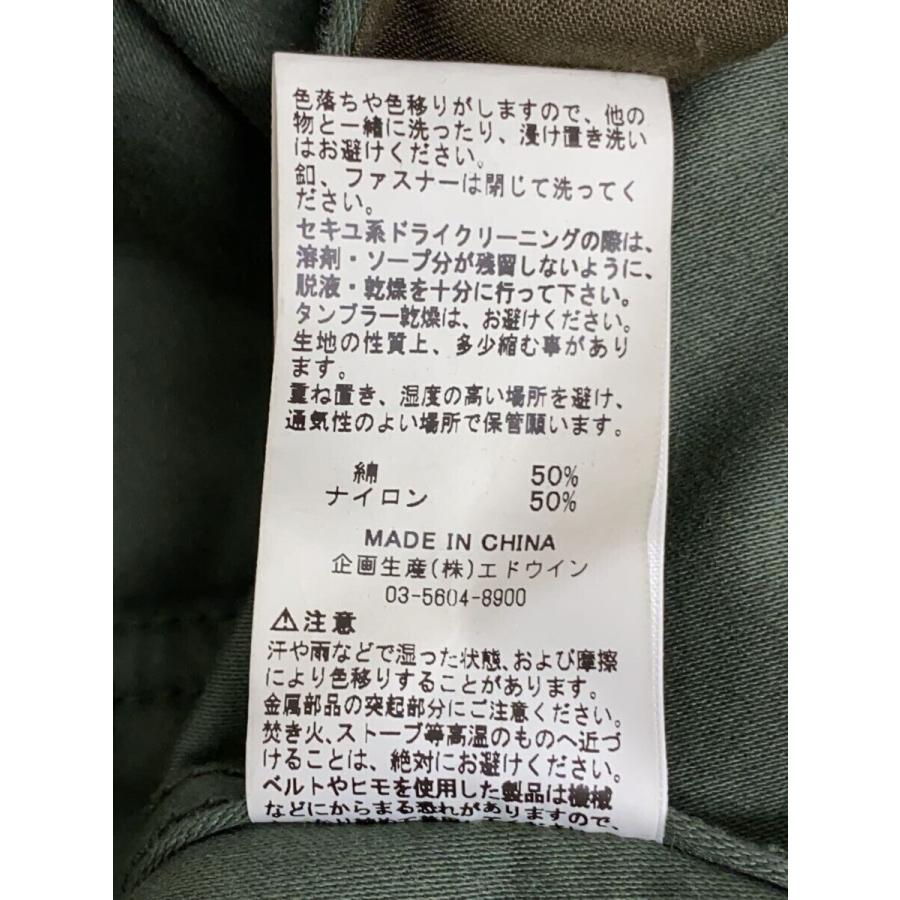 色落ちや色移りがしますので、他の
物と一緒に洗ったり、浸け置き洗い
はお避けください。
釦、ファスナーは閉じて洗ってく
ださい。
セキユ系ドライクリーニングの際は、
溶剤・ソープ分が残留しないように、
脱液・乾燥を十分に行って下さい。
タンブラー乾燥は、お避けください。
生地の性質上、多少縮む事があり
ます。
重ね置き、湿度の高い場所を避け、
通気性のよい場所で保管願います。
綿 50%
ナイロン 50%
MADE IN CHINA
企画生産(株)エドウイン
03-5604-8900
⚠注意
汗や雨などで湿った状態、および摩擦
により色移りすることがあります。
金属部品の突起部分にご注意ください。
焚き火、ストーブ等高温のものへ近づ
けることは、絶対にお避けください。
ベルトやヒモを使用した製品は機械
などにからまる恐れがありますので、